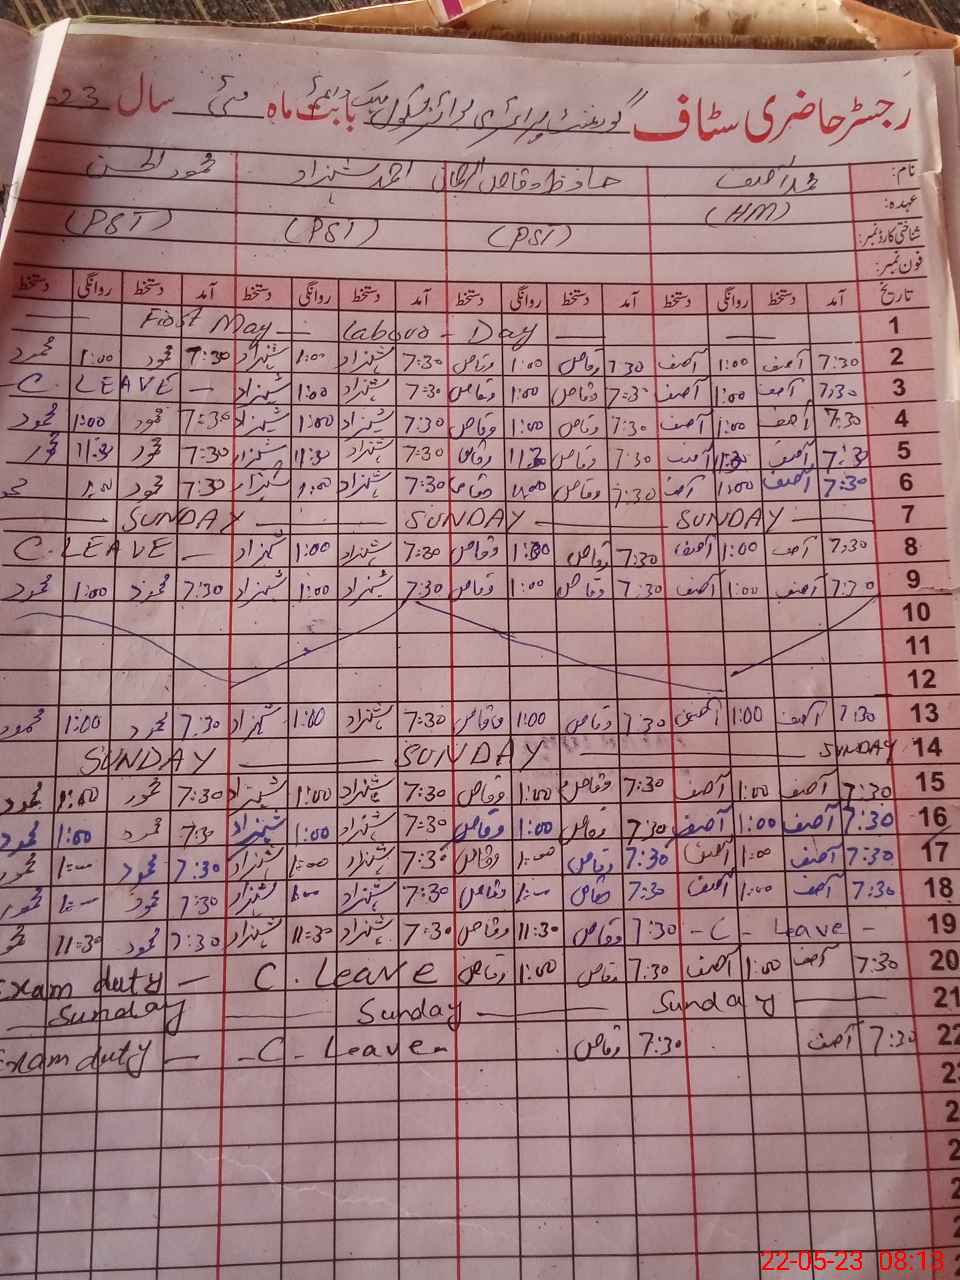 رجسٹر حاضری سٹاف گورنمنٹ پرائمری بوائز سکول بابت ماہ مئی سال 23
نام: محمد آصف حافظ وقاص احمد شہزاد محمود الحسن
عہدہ: (HM) (PST) (PST) (PST)
شناختی کارڈ نمبر:
فون نمبر:
تاریخ آمد دستخط روانگی دستخط آمد دستخط روانگی دستخط آمد دستخط روانگی دستخط آمد دستخط روانگی دستخط
1 First May Labour - Day
2 7:30 آصف 1:00 آصف 7:30 وقاص 1:00 وقاص 7:30 شہزاد 1:00 شہزاد 7:30 محمود 1:00 محمود
3 7:30 آصف 1:00 آصف 7:30 وقاص 1:00 وقاص 7:30 شہزاد 1:00 شہزاد C. LEAVE
4 7:30 آصف 1:00 آصف 7:30 وقاص 1:00 وقاص 7:30 شہزاد 1:00 شہزاد 7:30 محمود 1:00 محمود
5 7:30 آصف 11:30 آصف 7:30 وقاص 11:30 وقاص 7:30 شہزاد 11:30 شہزاد 7:30 محمود 11:30 محمود
6 7:30 آصف 1:00 آصف 7:30 وقاص 1:00 وقاص 7:30 شہزاد 1:00 شہزاد 7:30 محمود 1:00
7 SUNDAY SUNDAY SUNDAY
8 7:30 آصف 1:00 آصف 7:30 وقاص 1:00 وقاص 7:30 شہزاد 1:00 شہزاد C. LEAVE
9 7:30 آصف 1:00 آصف 7:30 وقاص 1:00 وقاص 7:30 شہزاد 1:00 شہزاد 7:30 محمود 1:00 محمود
10
11
12
13 7:30 آصف 1:00 آصف 7:30 وقاص 1:00 وقاص 7:30 شہزاد 1:00 شہزاد 7:30 محمود 1:00 محمود
14 SUNDAY SUNDAY SUNDAY
15 7:30 آصف 1:00 آصف 7:30 وقاص 1:00 وقاص 7:30 شہزاد 1:00 شہزاد 7:30 محمود 1:00 محمود
16 7:30 آصف 1:00 آصف 7:30 وقاص 1:00 وقاص 7:30 شہزاد 1:00 شہزاد 7:30 محمود 1:00 محمود
17 7:30 آصف 1:00 آصف 7:30 وقاص 1:00 وقاص 7:30 شہزاد 1:00 شہزاد 7:30 محمود 1:00 محمود
18 7:30 آصف 1:00 آصف 7:30 وقاص 1:00 وقاص 7:30 شہزاد 1:00 شہزاد 7:30 محمود 1:00 محمود
19 - C - Leave - 7:30 وقاص 11:30 وقاص 7:30 شہزاد 11:30 شہزاد 7:30 محمود 11:30
20 7:30 آصف 1:00 آصف 7:30 وقاص 1:00 وقاص C. Leave Exam duty
21 Sunday Sunday Sunday
22 7:30 آصف 7:30 وقاص - C - Leave - Exam duty
22-05-23 08:13